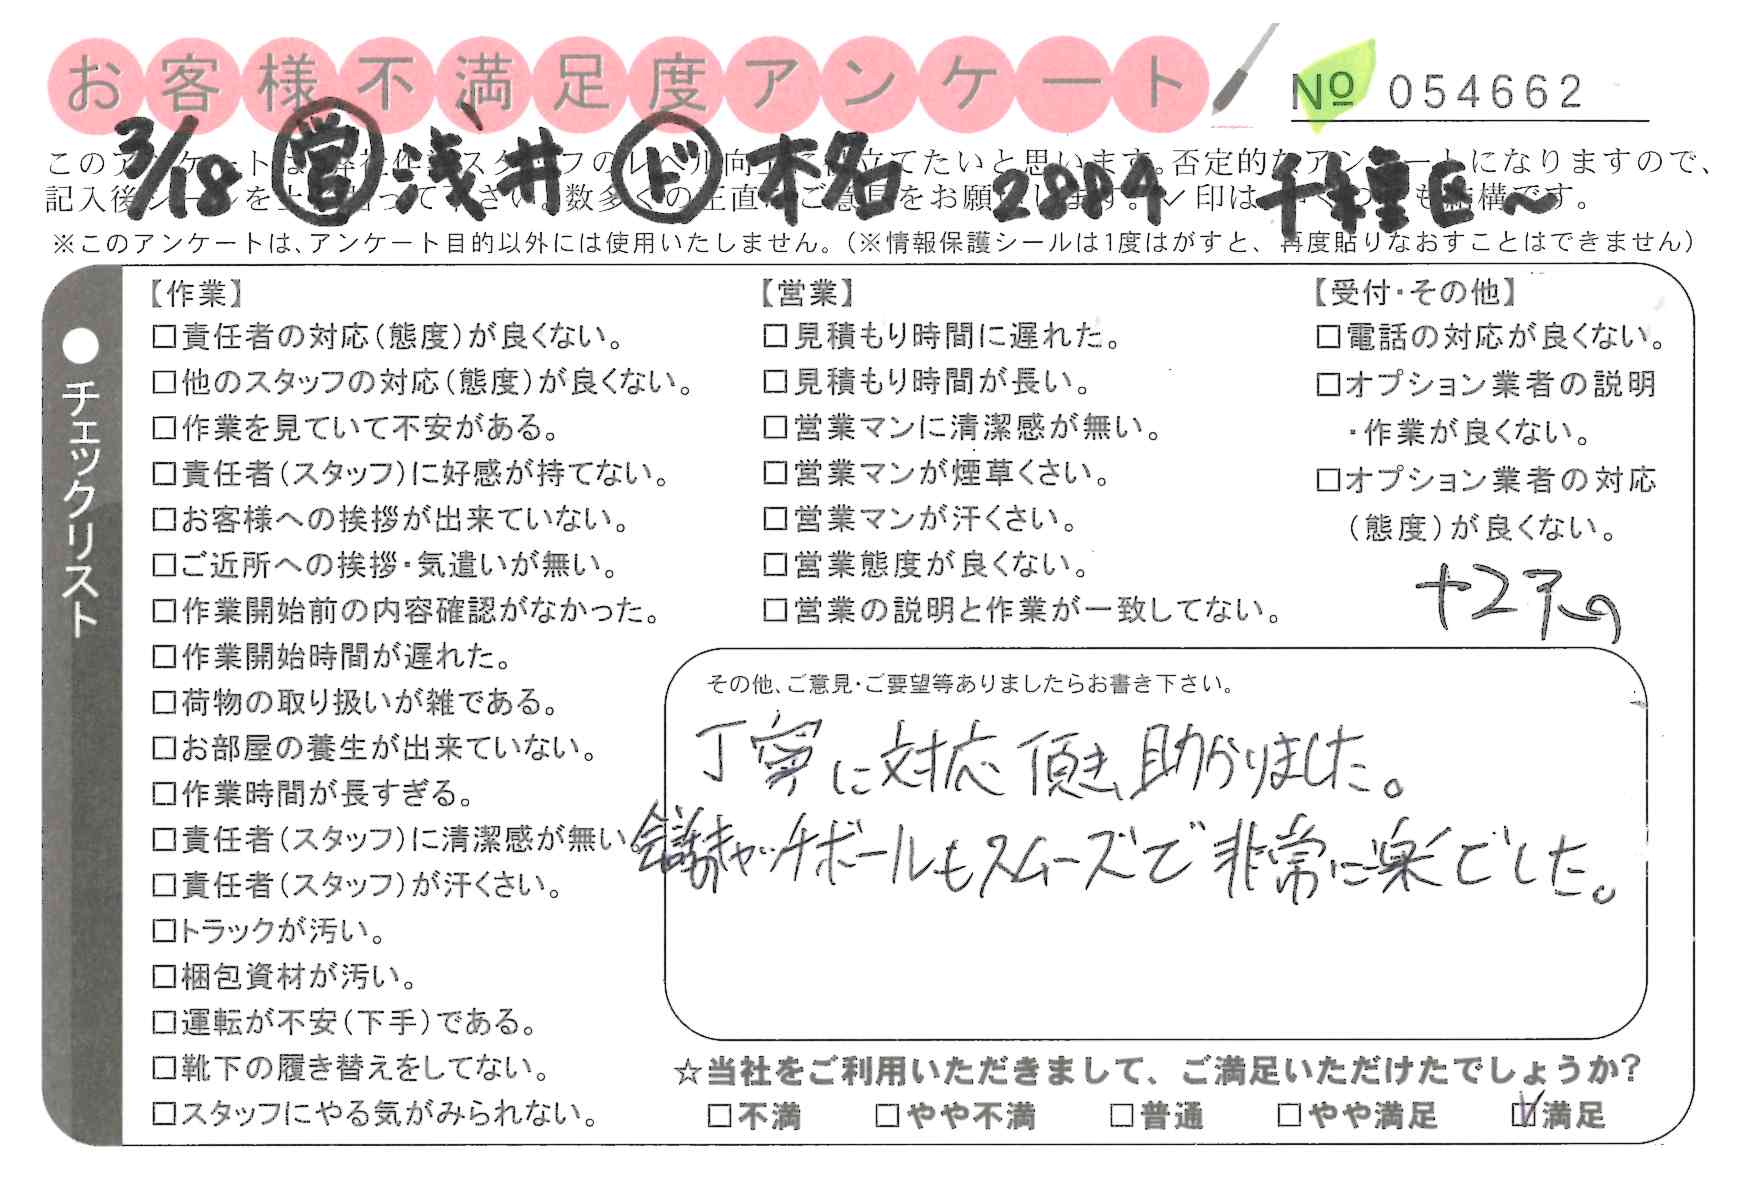 お客様不満足度アンケート
№ 054662
3/18 営 浅井 ド 本名 2884 千種区~
このアンケートは、弊社作業スタッフのレベル向上に役立てたいと思います。否定的なアンケートになりますので、
記入後シールを上から貼って下さい。数多くの正直なご意見をお願いします。✓印はいくつでも結構です。
※このアンケートは、アンケート目的以外には使用いたしません。(※情報保護シールは1度はがすと、再度貼りなおすことはできません)
●チェックリスト
【作業】
□責任者の対応(態度)が良くない。
□他のスタッフの対応(態度)が良くない。
□作業を見ていて不安がある。
□責任者(スタッフ)に好感が持てない。
□お客様への挨拶が出来ていない。
□ご近所への挨拶・気遣いが無い。
□作業開始前の内容確認がなかった。
□作業開始時間が遅れた。
□荷物の取り扱いが雑である。
□お部屋の養生が出来ていない。
□作業時間が長すぎる。
□責任者(スタッフ)に清潔感が無い。
□責任者(スタッフ)が汗くさい。
□トラックが汚い。
□梱包資材が汚い。
□運転が不安(下手)である。
□靴下の履き替えをしてない。
□スタッフにやる気がみられない。
【営業】
□見積もり時間に遅れた。
□見積もり時間が長い。
□営業マンに清潔感が無い。
□営業マンが煙草くさい。
□営業マンが汗くさい。
□営業態度が良くない。
□営業の説明と作業が一致してない。
【受付・その他】
□電話の対応が良くない。
□オプション業者の説明
・作業が良くない。
□オプション業者の対応
(態度)が良くない。
その他、ご意見・ご要望等ありましたらお書き下さい。
丁寧に対応頂き、助かりました。
会話のキャッチボールもスムーズで非常に楽でした。
☆当社をご利用いただきまして、ご満足いただけたでしょうか?
□不満 □やや不満 □普通 □やや満足 ☑満足